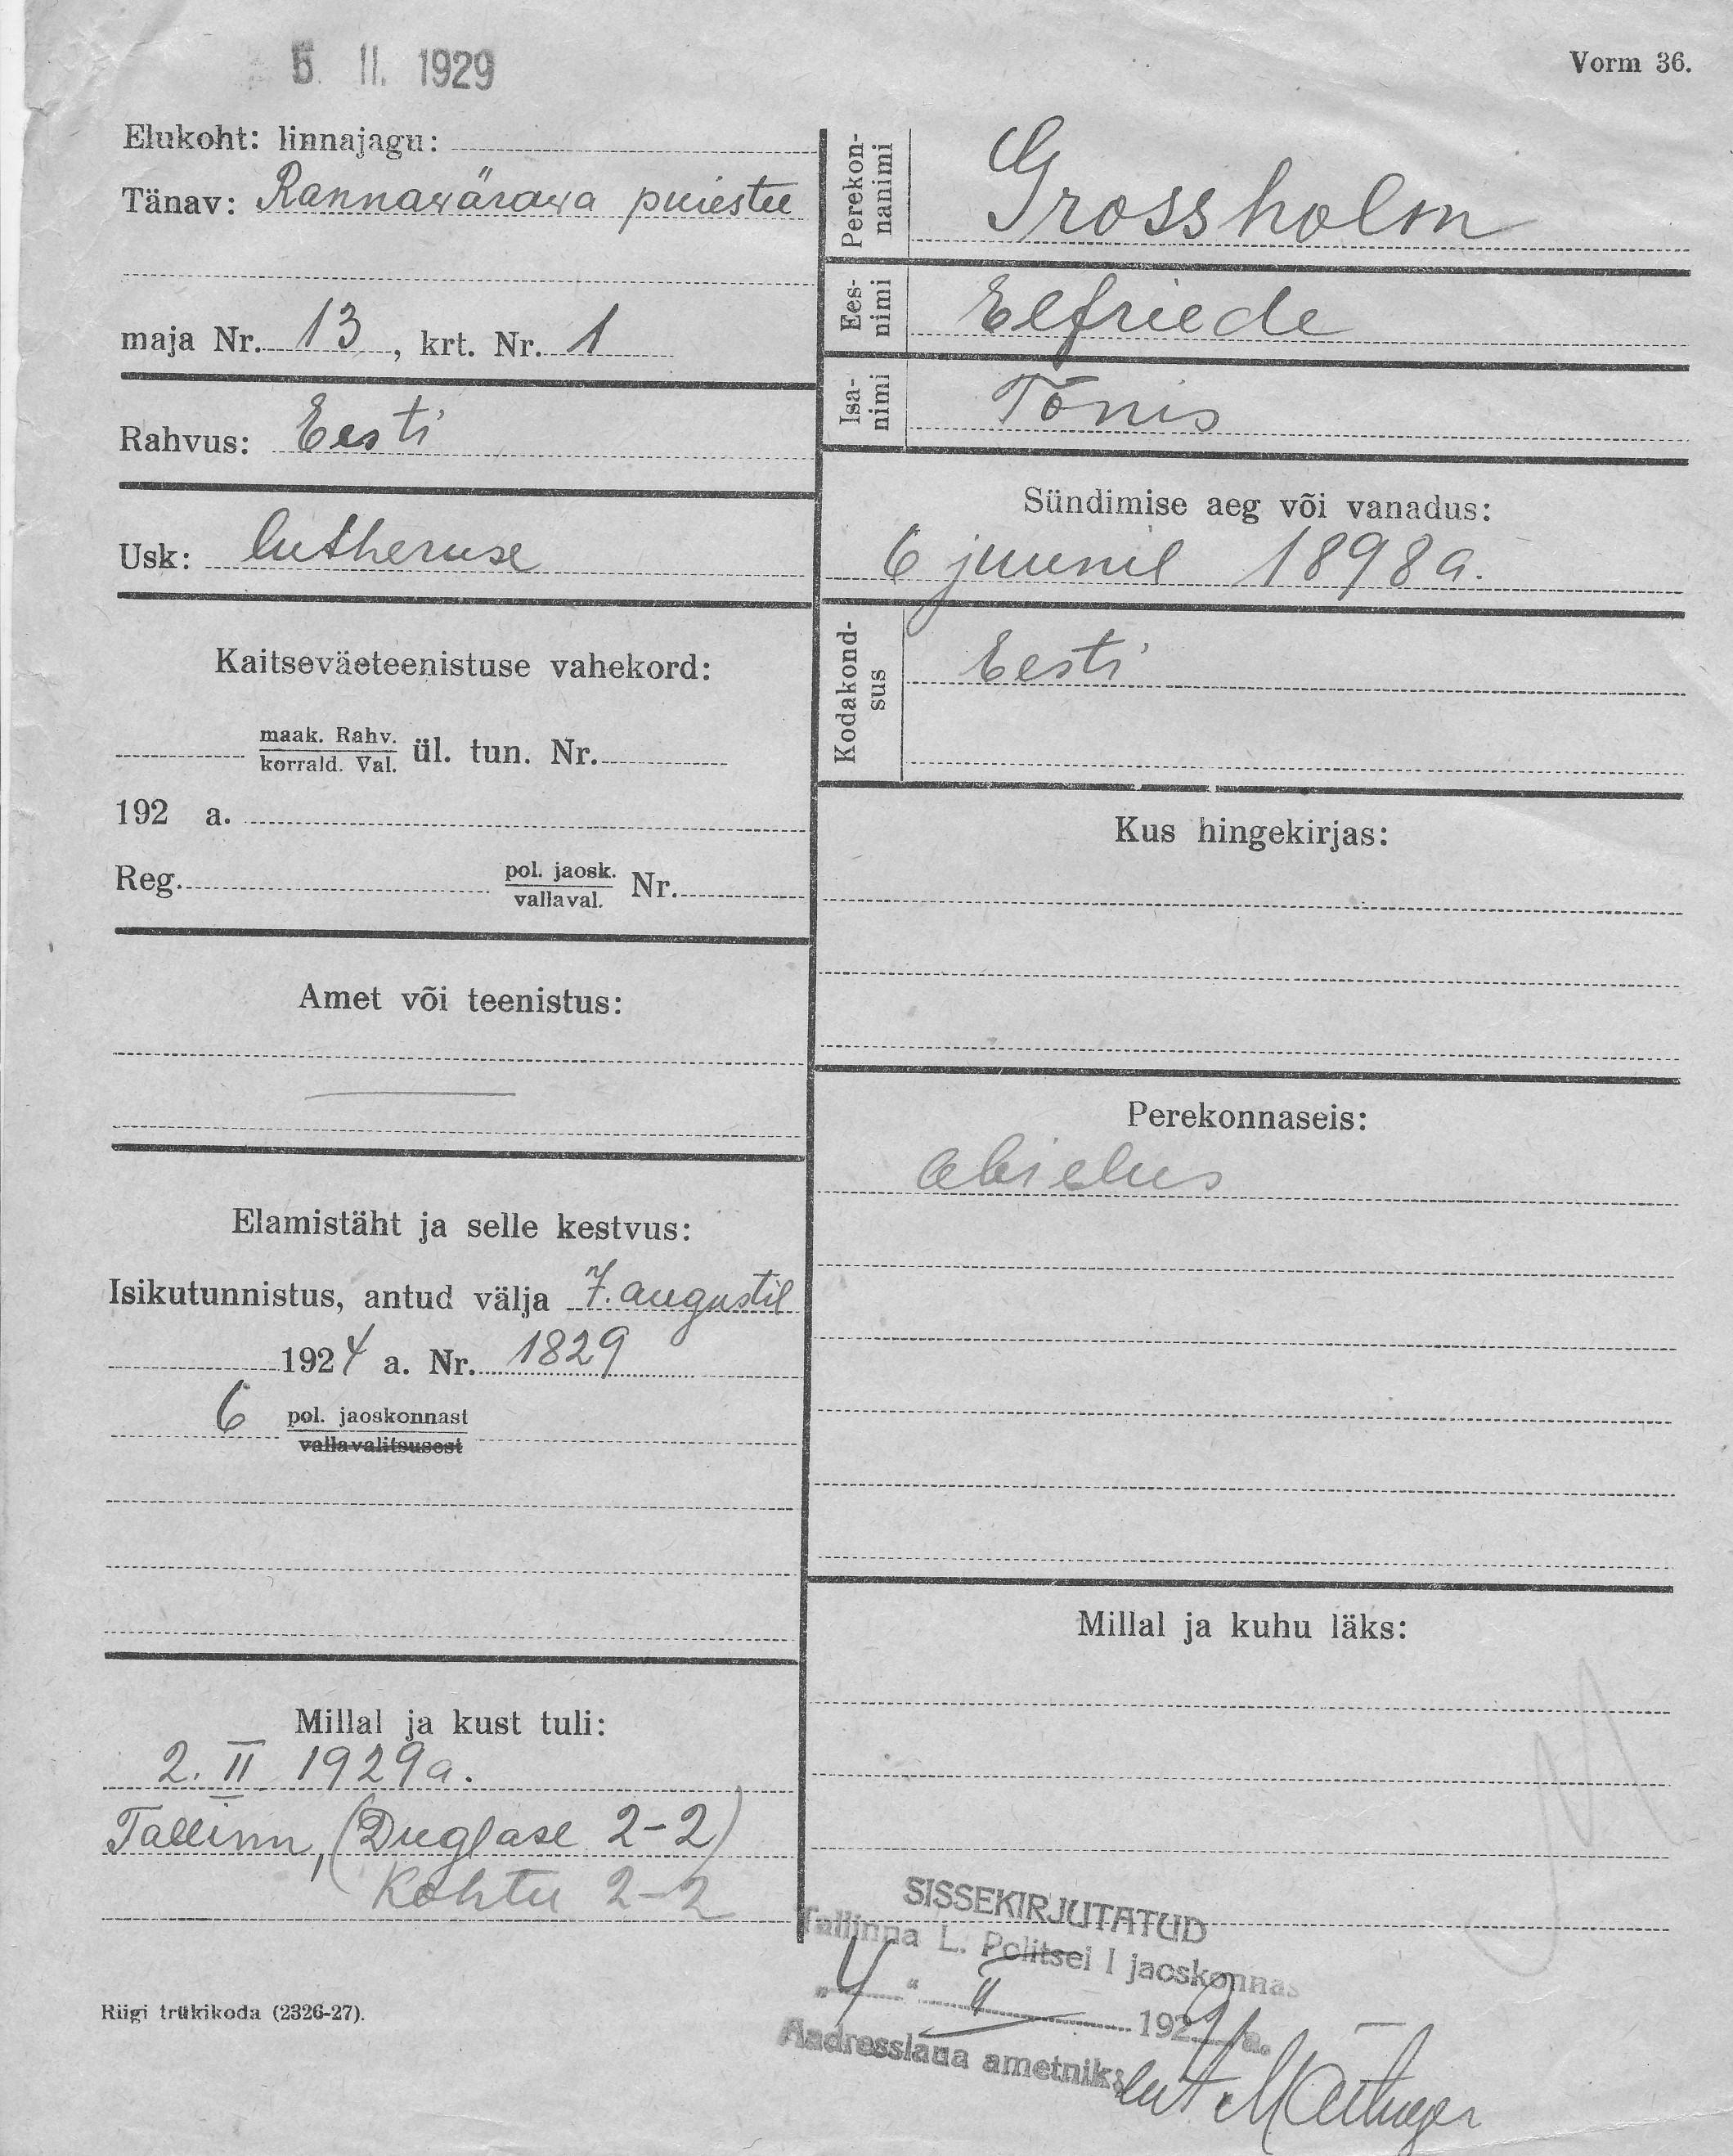 5. II. 1929
Vorm 36.
Elukoht: linnajagu:
Tänav: Rannawärawa puiestee
maja Nr. 13, krt. Nr. 1
Rahvus: Eesti
Usk: lutheruse
Kaitseväeteenistuse vahekord:
maak. Rahv.
korrald. Val.
ül. tun. Nr.
192 a.
Reg. pol. jaosk. Nr.
vallaval.
Amet või teenistus:
Elamistäht ja selle kestvus:
Isikutunnistus, antud välja 7. augustil
1924 a. Nr. 1829
6 pol. jaoskonnast
vallavalitsusest
Millal ja kust tuli:
2. II 1929a.
Tallinn, (Duglase 2-2)
Kohtu 2-2
Riigi trükikoda (2326-27).
Perekon-
nanimi
Grossholm
Ees-
nimi
Elfriede
Isa-
nimi
Tõnis
Sündimise aeg või vanadus:
6 juunil 1898a.
Kodakond-
sus
Eesti
Kus hingekirjas:
Perekonnaseis:
abielus
Millal ja kuhu läks:
SISSEKIRJUTATUD
Tallinna L. Politsei I jaoskonnas
„4“ II 1929 a.
Aadresslaua ametnik: